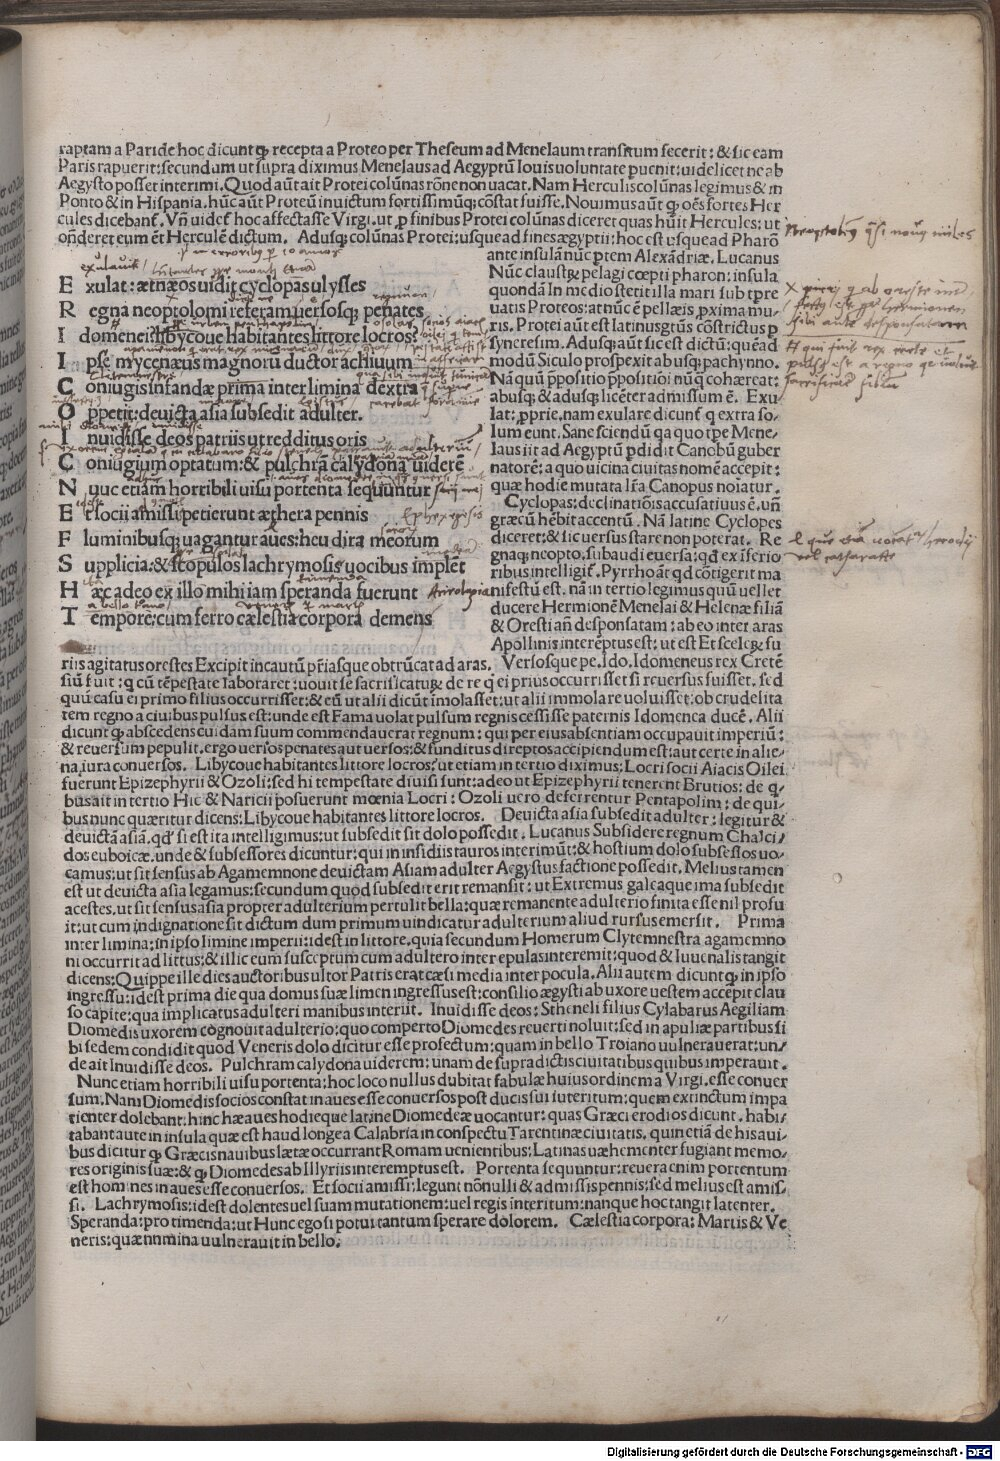 raptam a Paride hoc dicunt ꝙ recepta a Proteo per Theseum ad Menelaum transitum fecerit: & sic eam
Paris rapuerit: secundum ut supra diximus Menelaus ad Aegyptū Iouis uoluntate puenit: uidelicet ne ab
Aegysto posset interimi. Quod aūt ait Protei colūnas rōne non uacat. Nam Herculis colūnas legimus & in
Ponto & in Hispania. hūc aūt Proteū inuictum fortissimūq; cōstat fuisse. Nouimus aūt ꝙ oēs fortes Her
cules dicebant̄. Vn̄ uidet̄ hoc affectasse Virgi. ut p finibus Protei colūnas diceret quas hūit Hercules: ut
on̄deret eum ēt Herculē dictum. Adusq; colūnas Protei: usque ad fines ægyptii: hoc est usque ad Pharō
ante insulā nūc ptem Alexādriæ. Lucanus
Nūc claustꝝ pelagi cœpti pharon: insula
quondā In medio stetit illa mari sub tpre
uatis Proteos: at nūc ē pellæis pxima mu/
ris. Protei aūt est latinus gtūs cōstrictus p
synęresim. Adusq; aūt sic est dictū: quēad
modū Siculo prospexit ab usq; pachynno.
Nā quū ppositio ppositiōi nūq cohæreat:
abusq; & adusq; licēter admissum ē. Exu/
lat: pprie. nam exulare dicunt̄ q extra so/
lum eunt. Sane sciendū qa quo tpe Mene/
laus iit ad Aegyptū pdidit Canobū guber
natorē: a quo uicina ciuitas nomē accepit:
quæ hodie mutata lr̄a Canopus noiatur.
Cyclopas: declinatiōis accusatiuus ē. un̄
græcū hēbit accentū. Nā latine Cyclopes
diceret: & sic uersus stare non poterat. Re
gnaq; neopto. subaudi euersa: qd ex iferio
ribus intelligit̄. Pyrrho āt qd cōtigerit ma
nifestū est. nā in tertio legimus quū uellet
ducere Hermionē Menelai & Helenæ filiā
& Oresti an̄ desponsatam: ab eo inter aras
Apollinis interēptus est: ut est Et sceleꝝ fu
E xulat: ætnæos uidit cyclopas ulysses
R egna neoptolomi referam uersosq; penates
I domenei: libycoue habitantes littore locros:
I pse mycenæus magnorū ductor achiuum
C oniugis infandæ prima inter limina dextra
O ppetit: deuicta asia subsedit adulter.
I nuidisse deos patriis ut redditus oris
C oniugium optatum: & pulchrā calydona uiderē
N unc etiam horribili uisu portenta sequuntur
E t socii amissi petierunt æthera pennis
F luminibusq; uagantur aues: heu dira meorum
S upplicia: & scopulos lachrymosis uocibus implēt
H æc adeo ex illo mihi iam speranda fuerunt
T empore: cum ferro cælestia corpora demens
riis agitatus orestes Excipit incautū pr̄iasque obtrūcat ad aras. Versosque pe. Ido. Idomeneus rex Cretē
siū fuit: q cū tēpestate laboraret: uouit se sacrificatuꝝ de re q ei prius occurrisset si reuersus fuisset. sed
quū casu ei primo filius occurrisset: & eū ut alii dicūt īmolasset: ut alii immolare uoluisset: ob crudelita
tem regno a ciuibus pulsus est: unde est Fama uolat pulsum regnis cessisse paternis Idomenea ducē. Alii
dicunt ꝙ abscedens cuidam suum commendauerat regnum: qui per eius absentiam occupauit imperiū:
& reuersum pepulit. ergo uersos penates aut uersos: & funditus direptos accipiendum est: aut certe in alie/
na iura conuersos. Libycoue habitantes littore locros: ut etiam in tertio diximus: Locri socii Aiacis Oilei
fuerunt Epizephyrii & Ozoli: sed hi tempestate diuisi sunt: adeo ut Epizephyrii tenerent Brutios: de q/
bus ait in tertio Hic & Naricii posuerunt mœnia Locri: Ozoli uero deferrentur Pentapolim: de qui/
bus nunc quæritur dicens: Libycoue habitantes littore locros. Deuicta asia subsedit adulter: legitur &
deuictā asiā. qd' si est ita intelligimus: ut subsedit sit dolo possedit. Lucanus Subsidere regnum Chalci/
dos euboicæ. unde & subsessores dicuntur: qui in insidiis tauros interimūt: & hostium dolo subsessos uo/
camus: ut sit sensus ab Agamemnone deuictam Asiam adulter Aegystus factione possedit. Melius tamen
est ut deuicta asia legamus: secundum quod subsedit erit remansit: ut Extremus galeaque ima subsedit
acestes. ut sit sensus asia propter adulterium pertulit bella: quæ remanente adulterio finita esse nil profu
it: ut cum indignatione sit dictum dum primum uindicatur adulterium aliud rursus emersit. Prima
inter limina: in ipso limine imperii: idest in littore. quia secundum Homerum Clytemnestra agamemno
ni occurrit ad littus: & illic eum susceptum cum adultero inter epulas interemit: quod & Iuuenalis tangit
dicens: Quippe ille dies auctoribus ultor Patris erat cæsi media inter pocula. Alii autem dicunt ꝙ in ipso
ingressu: idest prima die qua domus suæ limen ingressus est: consilio ægysti ab uxore uestem accepit clau
so capite: qua implicatus adulteri manibus interiit. Inuidisse deos: Stheneli filius Cylabarus Aegiliam
Diomedis uxorem cognouit adulterio: quo comperto Diomedes reuerti noluit: sed in apuliæ partibus si
bi sedem condidit quod Veneris dolo dicitur esse profectum: quam in bello Troiano uulnerauerat: un/
de ait Inuidisse deos. Pulchram calydona uiderem: unam de supradictis ciuitatibus quibus imperauit.
Nunc etiam horribili uisu portenta: hoc loco nullus dubitat fabulæ huius ordinem a Virgi. esse conuer
sum. Nam Diomedis socios constat in aues esse conuersos post ducis sui iuteritum: quem extinctum impa
tienter dolebant. hinc hæ aues hodieque latine Diomedeæ uocantur: quas Græci erodios dicunt. habi/
tabant aute in insula quæ est haud longe a Calabria in conspectu Tarentinæ ciuitatis. quin etiā de his aui/
bus dicitur ꝙ Græcis nauibus lætæ occurrant Romam uenientibus: Latinas uæhementer fugiant memo/
res originis suæ: & ꝙ Diomedes ab Illyriis interemptus est. Portenta sequuntur: reuera enim portentum
est homines in aues esse conuersos. Et socii amissi: legunt nōnulli & admissis pennis: sed melius est amis/
si. Lachrymosis: idest dolentes uel suam mutationem: uel regis interitum: nanque hoc tangit latenter.
Speranda: pro timenda: ut Hunc ego si potui tantum sperare dolorem. Cælestia corpora: Martis & Ve
neris: quæ numina uulnerauit in bello.
Digitalisierung gefördert durch die Deutsche Forschungsgemeinschaft - DFG